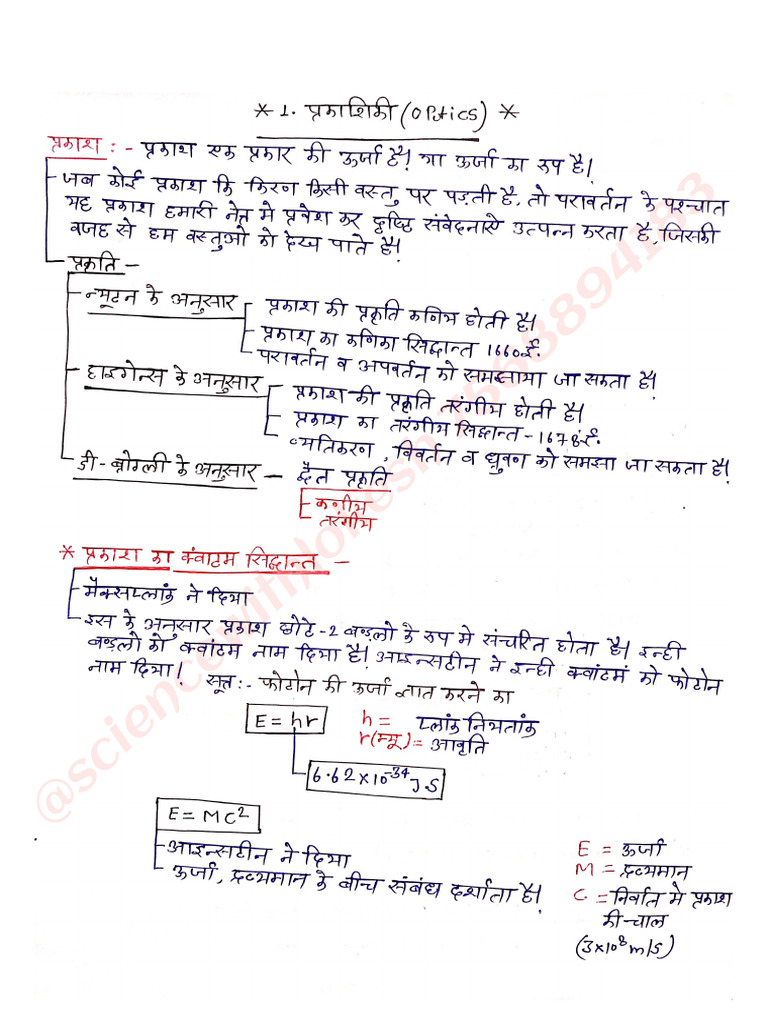 * 1. प्रकाशिकी (OPtics) *
प्रकाश :- प्रकाश एक प्रकार की ऊर्जा है। या ऊर्जा का रूप है।
जब कोई प्रकाश कि किरण किसी वस्तु पर पड़ती है, तो परावर्तन के पश्चात
यह प्रकाश हमारी नेत्र मे प्रवेश कर दृष्टि संवेदनाऐ उत्पन्न करता है, जिसकी
वजह से हम वस्तुओ को देख पाते है।
प्रकृति -
न्यूटन के अनुसार
प्रकाश की प्रकृति कणिय होती है।
प्रकाश का कणिका सिद्धान्त 1660ई.
परावर्तन व अपवर्तन को समझाया जा सकता है।
हाइगेन्स के अनुसार
प्रकाश की प्रकृति तरंगीय होती है।
प्रकाश का तरंगीय सिद्धान्त - 1678ई.
व्यतिकरण, विवर्तन व ध्रुवण को समझा जा सकता है।
डी-ब्रोग्ली के अनुसार - द्वैत प्रकृति
कणीय
तरंगीय
* प्रकाश का क्वांटम सिद्धान्त -
मैक्सप्लांक ने दिया
इस के अनुसार प्रकाश छोटे-2 बण्डलो के रूप मे संचरित होता है। इन्ही
बण्डलो को क्वांटम नाम दिया है। आइन्सटीन ने इन्ही क्वांटम को फोटोन
नाम दिया।
सूत्र :- फोटोन की ऊर्जा ज्ञात करने का
E = hr
h = प्लांक नियतांक
r(म्यू) = आवृति
6.62×10⁻³⁴ J.S
E = MC²
आइन्सटीन ने दिया
ऊर्जा, द्रव्यमान के बीच संबंध दर्शाता है।
E = ऊर्जा
M = द्रव्यमान
C = निर्वात मे प्रकाश
की चाल
(3×10⁸ m/s)